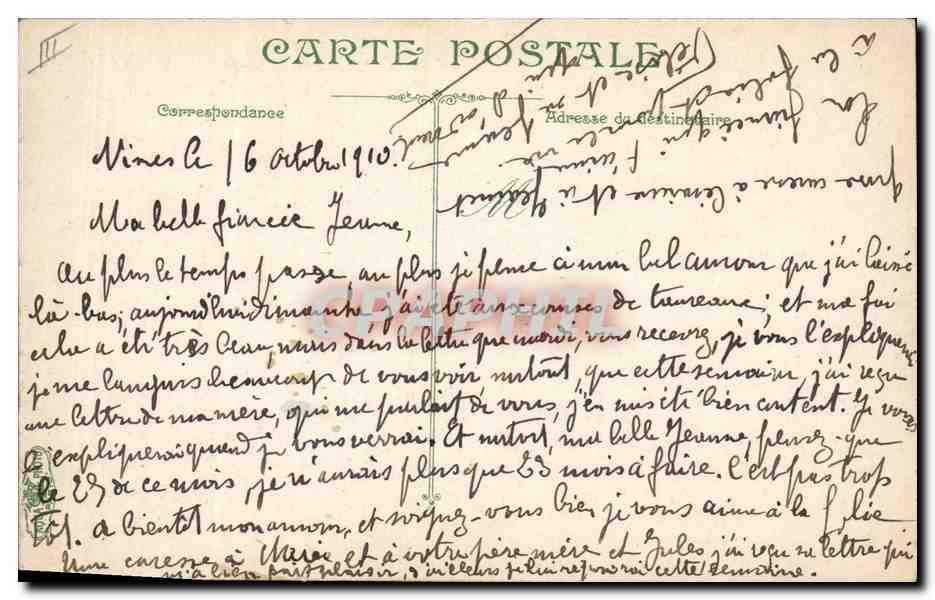 III
CARTE POSTALE
Correspondance
Adresse du destinataire
Nimes le 16 octobre 1910.
Ma belle fiancée Jeanne,
Au plus le temps passe, au plus je pense à mon bel amour que j'ai laissé
là-bas; aujourd'hui dimanche, j'ai été aux courses de taureaux; et ma foi
cela a été très beau, mais dans la lettre que mardi, vous recevrez, je vous l'expliquerai
je me languis beaucoup de vous voir surtout, que cette semaine, j'ai reçu
une lettre de ma mère, qui me parlait de vous, j'en suis été bien content. Je vous
l'expliquerai quand je vous verrai. Et surtout, ma belle Jeanne, pensez-que
le 25 de ce mois, je n'aurais plus que 23 mois à faire. C'est pas trop
tôt. A bientôt mon amour, et soignez-vous bien, je vous aime à la folie
Une caresse à et à votre père mère et Jules j'ai reçu sa lettre qui
m'a bien fait plaisir, d'ailleurs je lui répondrai cette semaine.
à la folie et
fiancé qui l'aime
la vie.
une caresse à et à
CPAPHIL